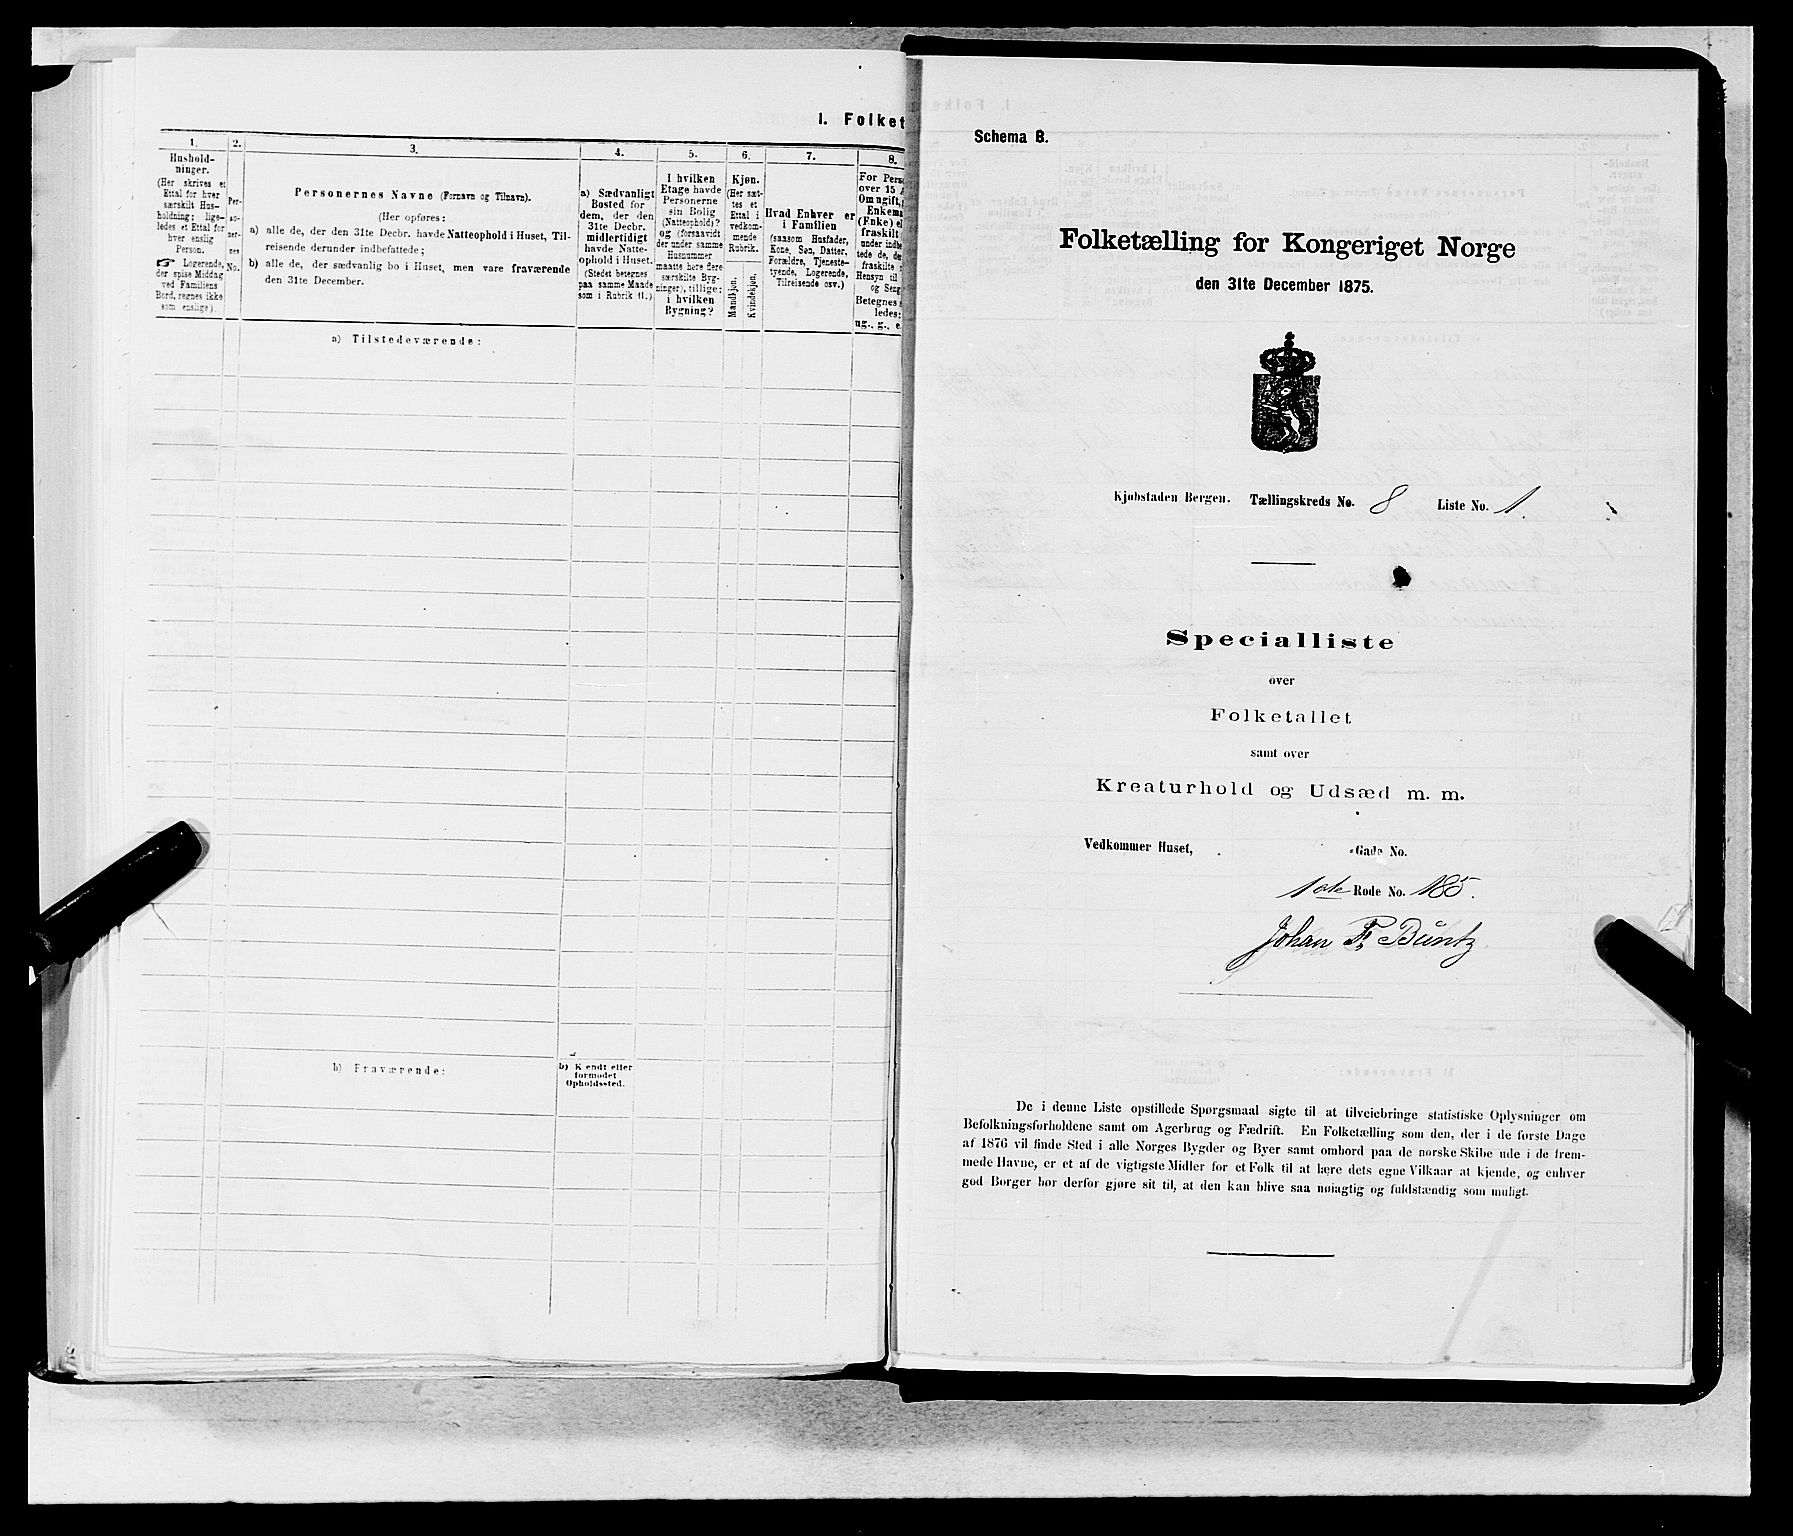 I. Folket
1. 2. 3. 4. 5. 6. 7. 8.
Hushold-
ninger.
(Her skrives et
Ettal for hver
særskilt Hus-
holdning; lige-
ledes et Ettal for
hver enslig
Person.
☞ Logerende,
der spise Middag
ved Familiens
Bord, regnes ikke
som enslige).
Per-
so-
ner-
nes
No.
Personernes Navne (Fornavn og Tilnavn).
(Her opføres:
a) alle de, der den 31te Decbr. havde Natteophold i Huset, Til-
reisende derunder indbefattede;
b) alle de, der sædvanlig bo i Huset, men vare fraværende
den 31te December.
a) Sædvanligt
Bosted for
dem, der den
31te Decbr.
midlertidigt
havde Natte-
ophold i Huset.
(Stedet betegnes
paa samme Maade
som i Rubrik 11.)
I hvilken
Etage havde
Personerne
sin Bolig
(Natteophold)?
og (forsaavidt
der under samme
Husnummer
maatte høre flere
særskilte Byg-
ninger), tillige:
i hvilken
Bygning?
Kjøn.
(Her sæt-
tes et
Ettal i
vedkom-
mende
Rubrik.
Mandkjøn.
Kvindekjøn.
Hvad Enhver er
i Familien
(saasom Husfader,
Kone, Søn, Datter,
Forældre, Tjeneste-
tyende, Logerende,
Tilreisende osv.)
For Pers
over 15 A
Om ugift, g
Enkema
(Enke) el
fraskilt
under indbe
tede de, de
fraskilte
Hensyn til
og Seng
Betegnes s
ledes:
ug., g., e.
a) Tilstedeværende:
b) Fraværende:
b) Kjendt eller
formodet
Opholdssted.
Schema B.
Folketælling for Kongeriget Norge
den 31te December 1875.
Kjøbstaden Bergen. Tællingskreds No. 8 Liste No. 1.
Specialliste
over
Folketallet
samt over
Kreaturhold og Udsæd m. m.
Vedkommer Huset, Gade No.
1ste Rode No. 185.
Johan F. Büntz
De i denne Liste opstillede Spørgsmaal sigte til at tilveiebringe statistiske Oplysninger om
Befolkningsforholdene samt om Agerbrug og Fædrift. En Folketælling som den, der i de første Dage
af 1876 vil finde Sted i alle Norges Bygder og Byer samt ombord paa de norske Skibe ude i de frem-
mede Havne, er et af de vigtigste Midler for et Folk til at lære dets egne Vilkaar at kjende, og enhver
god Borger bør derfor gjøre sit til, at den kan blive saa nøiagtig og fuldstændig som muligt.